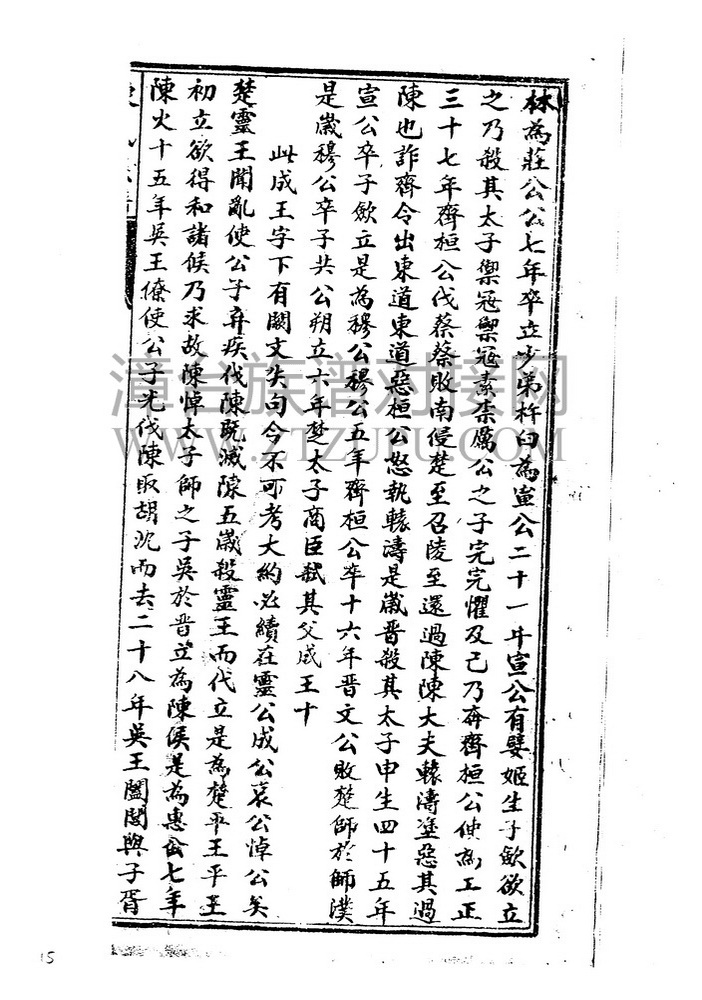 林為莊公公七年卒立少弟杵臼為宣公二十一年宣公有嬖姬生子歂欲立
之乃殺其太子禦寇禦寇素柰厲公之子完完懼及己乃奔齊桓公使為工正
三十七年齊桓公伐蔡蔡敗南侵楚至召陵至還過陳陳大夫轅濤塗惡其過
陳也詐齊令出東道東道惡桓公怒執轅濤是歲晉殺其太子申生四十五年
宣公卒子歂立是為穆公穆公五年齊桓公卒十六年晉文公敗楚師於師濮
是歲穆公卒子共公朔立六年楚太子商臣弒其父成王十
此成王字下有闕文失句今不可考大約必續在靈公成公哀公悼公矣
楚靈王聞亂使公子弃疾伐陳既滅陳五歲殺靈王而代立是為楚平王平王
初立欲得和諸侯乃求故陳悼太子師之子吳於晋立為陳侯是為惠公七年
陳火十五年吳王僚使公子光伐陳取胡沈而去二十八年吳王闔閭與子胥
漳台族谱对接网
WWW.ZTZUPU.COM
15